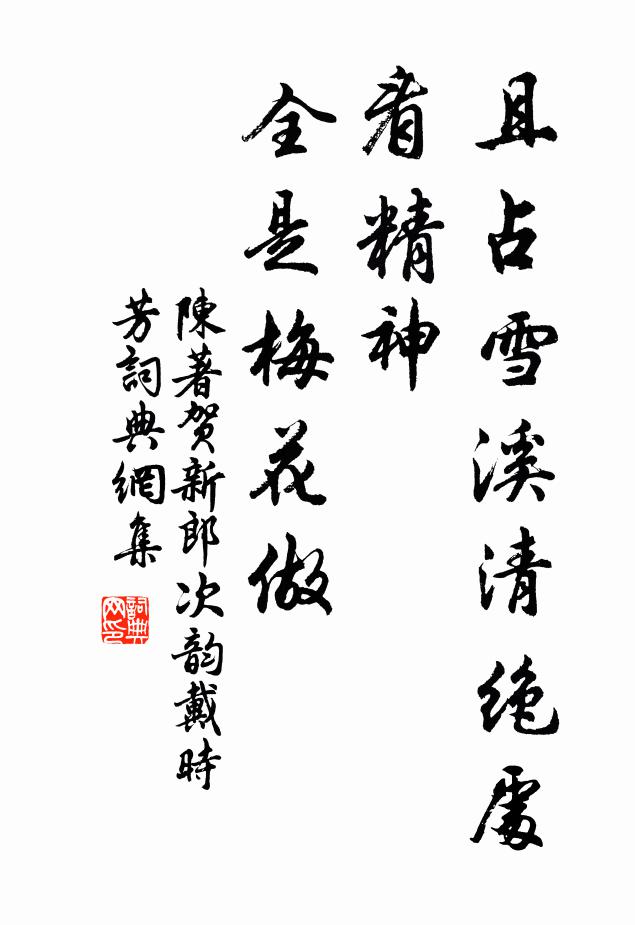 且占雪溪清絶處
看精神
全是梅花做
陳著賀新郎次韵戴時
芳詞典網集
詞典
网印